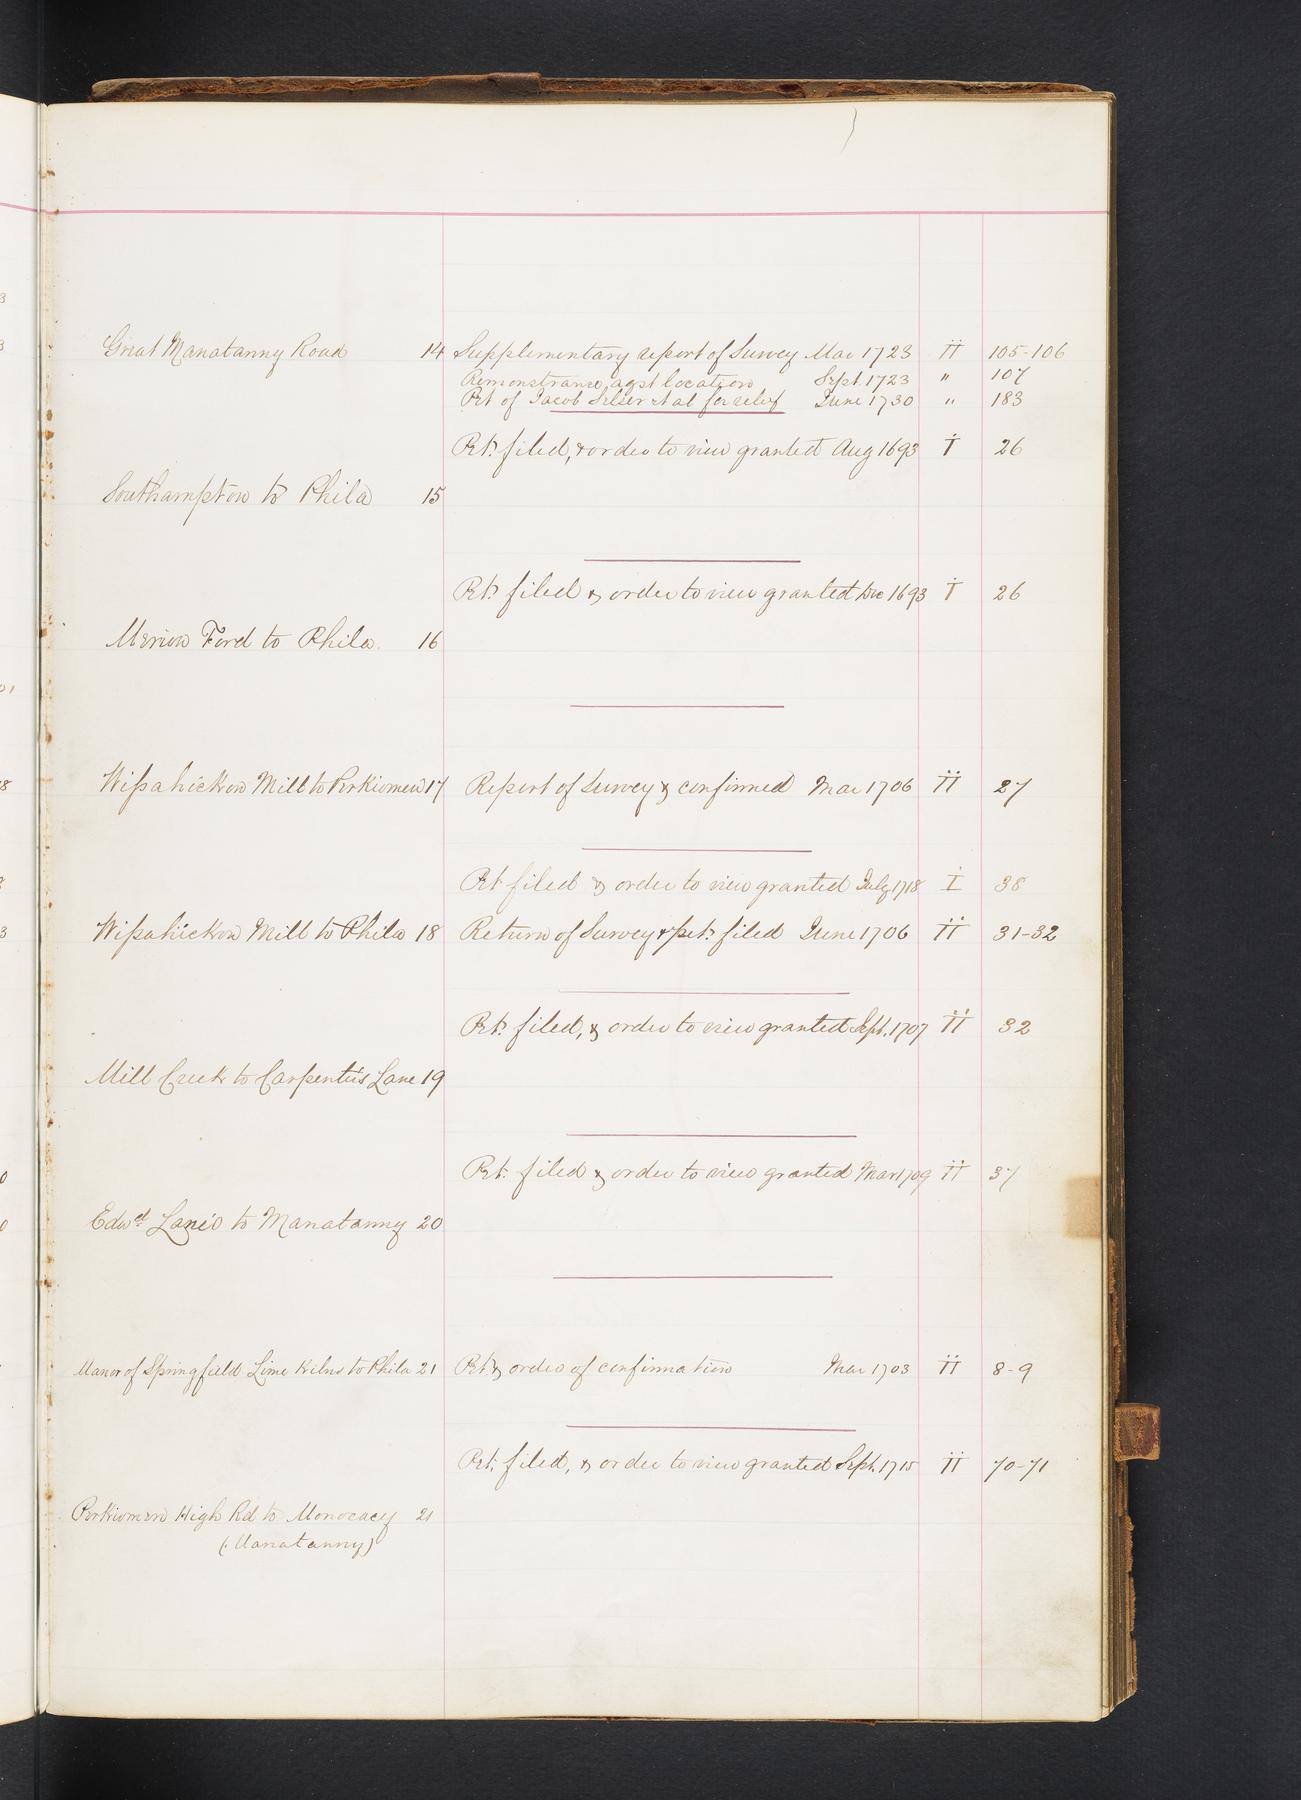 Great Manatanny Road 14 Supplementary report of Survey Mar 1723 II 105-106
Remonstrance agst location Sept 1723 " 107
Pet of Jacob Selser et al for relief June 1730 " 183
Pet. filed, & order to view granted Aug 1693 I 26
Southampton to Phila 15
Pet. filed & order to view granted Dec 1693 I 26
Merion Ford to Phila. 16
Wissahickon Mill to Perkiomen 17 Report of Survey & confirmed Mar 1706 II 27
Pet filed & order to view granted July 1718 I 38
Wissahickon Mill to Phila 18 Return of Survey & pet. filed June 1706 II 31-32
Pet. filed, & order to view granted Sept. 1707 II 32
Mill Creek to Carpenters Lane 19
Pet. filed & order to view granted Mar 1709 II 37
Edwd Lane's to Manatanny 20
Manor of Springfield Lime Kilns to Phila 21 Pet & order of confirmation Mar 1703 II 8-9
Pet. filed, & order to view granted Sept. 1715 II 70-71
Perkiomen High Rd to Monocacy 21
(Manatanny)